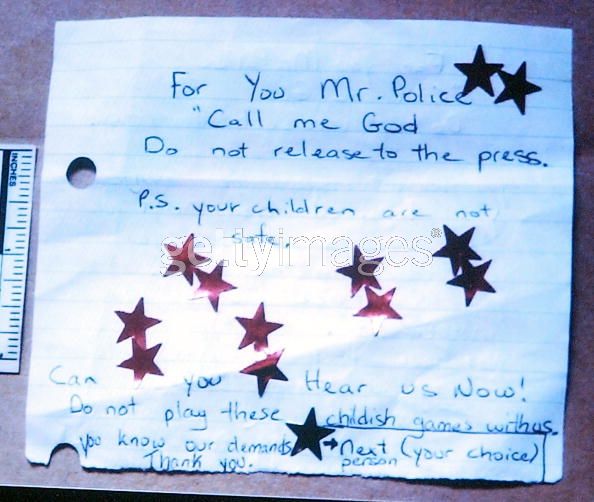 For You Mr. Police
"Call me God
Do not release to the press.
P.S. your children are not
safe.
gettyimages®
Can you Hear us Now!
Do not play these childish games with us.
You know our demands → Next (your choice)
Thank you. person
INCHES